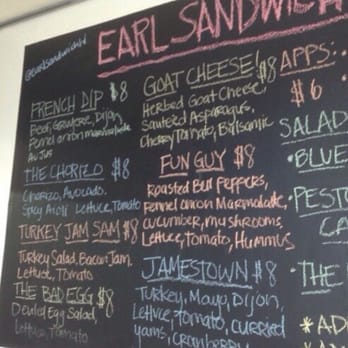 EARL SANDWICH
@earlsandwichld
FRENCH DIP $8
Beef, Gruyere, Dijon,
Fennel onion marmalade
Au Jus
THE CHORIZO $8
Chorizo, Avocado,
Spicy Aioli Lettuce, Tomato
TURKEY JAM SAM $8
Turkey Salad, Bacon Jam,
Lettuce, Tomato
THE BAD EGG $8
Deviled Egg Salad,
Lettuce, Tomato
GOAT CHEESE! $8
Herbed Goat Cheese,
Sauteed Asparagus,
Cherry Tomato, Balsamic
FUN GUY $8
Roasted Bell Peppers,
Fennel onion Marmalade,
cucumber, mushrooms
Lettuce, Tomato, Hummus
JAMESTOWN $8
Turkey, Mayo, Dijon,
Lettuce, tomato, curried
yams, cranberry
APPS:
$6
SALAD
• BLUE
• PESTO
CA
• THE
* AD
* AN